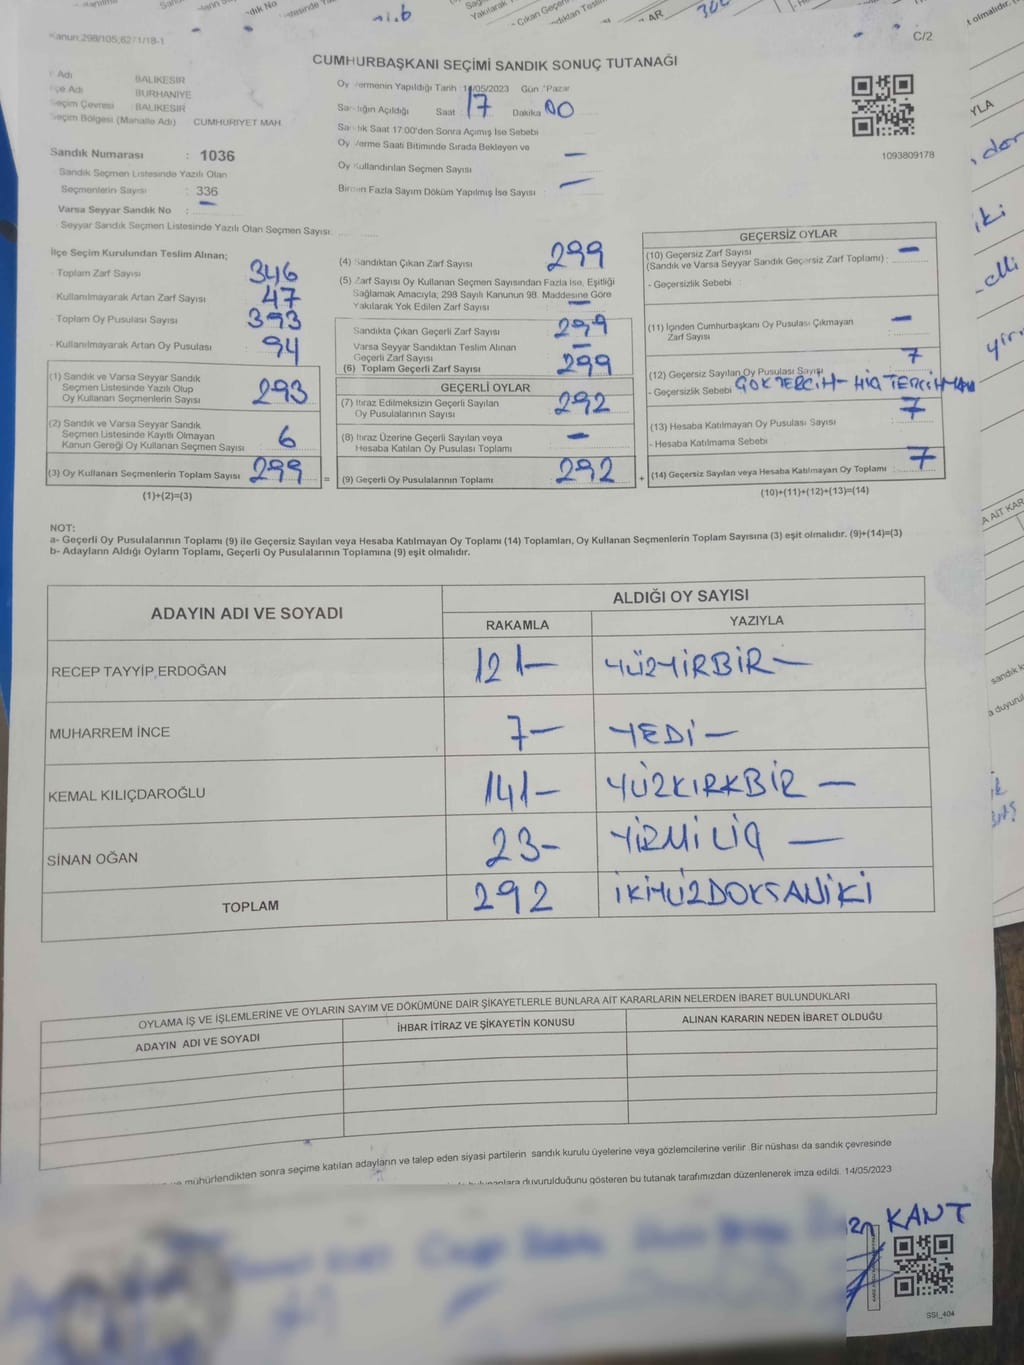 Kanun:298/105,6271/18-1
C/2
CUMHURBAŞKANI SEÇİMİ SANDIK SONUÇ TUTANAĞI
Adı BALIKESİR
Adı BURHANİYE
Seçim Çevresi : BALIKESİR
Seçim Bölgesi (Mahalle Adı) CUMHURİYET MAH.
Sandık Numarası : 1036
Sandık Seçmen Listesinde Yazılı Olan
Seçmenlerin Sayısı : 336
Varsa Seyyar Sandık No : —
Seyyar Sandık Seçmen Listesinde Yazılı Olan Seçmen Sayısı:
Oy Vermenin Yapıldığı Tarih 14/05/2023 Gün : Pazar
Sandığın Açıldığı Saat 17 Dakika 00
Sandık Saat 17:00'den Sonra Açımış İse Sebebi
Oy Verme Saati Bitiminde Sırada Bekleyen ve
Oy Kullandırılan Seçmen Sayısı —
Birden Fazla Sayım Döküm Yapılmış İse Sayısı —
1093809178
İlçe Seçim Kurulundan Teslim Alınan;
- Toplam Zarf Sayısı 346
- Kullanılmayarak Artan Zarf Sayısı 47
- Toplam Oy Pusulası Sayısı 393
- Kullanılmayarak Artan Oy Pusulası 94
(1) Sandık ve Varsa Seyyar Sandık
Seçmen Listesinde Yazılı Olup
Oy Kullanan Seçmenlerin Sayısı 293
(2) Sandık ve Varsa Seyyar Sandık
Seçmen Listesinde Kayıtlı Olmayan
Kanun Gereği Oy Kullanan Seçmen Sayısı 6
(3) Oy Kullanan Seçmenlerin Toplam Sayısı 299 =
(1)+(2)=(3)
(4) Sandıktan Çıkan Zarf Sayısı 299
(5) Zarf Sayısı Oy Kullanan Seçmen Sayısından Fazla İse, Eşitliği
Sağlamak Amacıyla; 298 Sayılı Kanunun 98. Maddesine Göre
Yakılarak Yok Edilen Zarf Sayısı —
Sandıkta Çıkan Geçerli Zarf Sayısı 299
Varsa Seyyar Sandıktan Teslim Alınan
Geçerli Zarf Sayısı —
(6) Toplam Geçerli Zarf Sayısı 299
GEÇERLİ OYLAR
(7) İtiraz Edilmeksizin Geçerli Sayılan
Oy Pusulalarının Sayısı 292
(8) İtiraz Üzerine Geçerli Sayılan veya
Hesaba Katılan Oy Pusulası Toplamı —
(9) Geçerli Oy Pusulalarının Toplamı 292 +
GEÇERSİZ OYLAR
(10) Geçersiz Zarf Sayısı —
(Sandık ve Varsa Seyyar Sandık Geçersiz Zarf Toplamı) :
- Geçersizlik Sebebi :
(11) İçinden Cumhurbaşkanı Oy Pusulası Çıkmayan
Zarf Sayısı —
(12) Geçersiz Sayılan Oy Pusulası Sayısı 7
- Geçersizlik Sebebi ÇOK TERCİH - HİÇ TERCİH
(13) Hesaba Katılmayan Oy Pusulası Sayısı 7
- Hesaba Katılmama Sebebi
(14) Geçersiz Sayılan veya Hesaba Katılmayan Oy Toplamı : 7
(10)+(11)+(12)+(13)=(14)
NOT:
a- Geçerli Oy Pusulalarının Toplamı (9) ile Geçersiz Sayılan veya Hesaba Katılmayan Oy Toplamı (14) Toplamları, Oy Kullanan Seçmenlerin Toplam Sayısına (3) eşit olmalıdır. (9)+(14)=(3)
b- Adayların Aldığı Oyların Toplamı, Geçerli Oy Pusulalarının Toplamına (9) eşit olmalıdır.
ADAYIN ADI VE SOYADI
ALDIĞI OY SAYISI
RAKAMLA YAZIYLA
RECEP TAYYİP ERDOĞAN 121— YÜZYİRBİR —
MUHARREM İNCE 7— YEDİ —
KEMAL KILIÇDAROĞLU 141— YÜZKIRKBİR —
SİNAN OĞAN 23— YİRMİ ÜÇ —
TOPLAM 292 İKİYÜZDOKSANİKİ
OYLAMA İŞ VE İŞLEMLERİNE VE OYLARIN SAYIM VE DÖKÜMÜNE DAİR ŞİKAYETLERLE BUNLARA AİT KARARLARIN NELERDEN İBARET BULUNDUKLARI
ADAYIN ADI VE SOYADI
İHBAR İTİRAZ VE ŞİKAYETİN KONUSU
ALINAN KARARIN NEDEN İBARET OLDUĞU
mühürlendikten sonra seçime katılan adayların ve talep eden siyasi partilerin sandık kurulu üyelerine veya gözlemcilerine verilir. Bir nüshası da sandık çevresinde
duyurulduğunu gösteren bu tutanak tarafımızdan düzenlenerek imza edildi. 14/05/2023
KANT
SSI_404